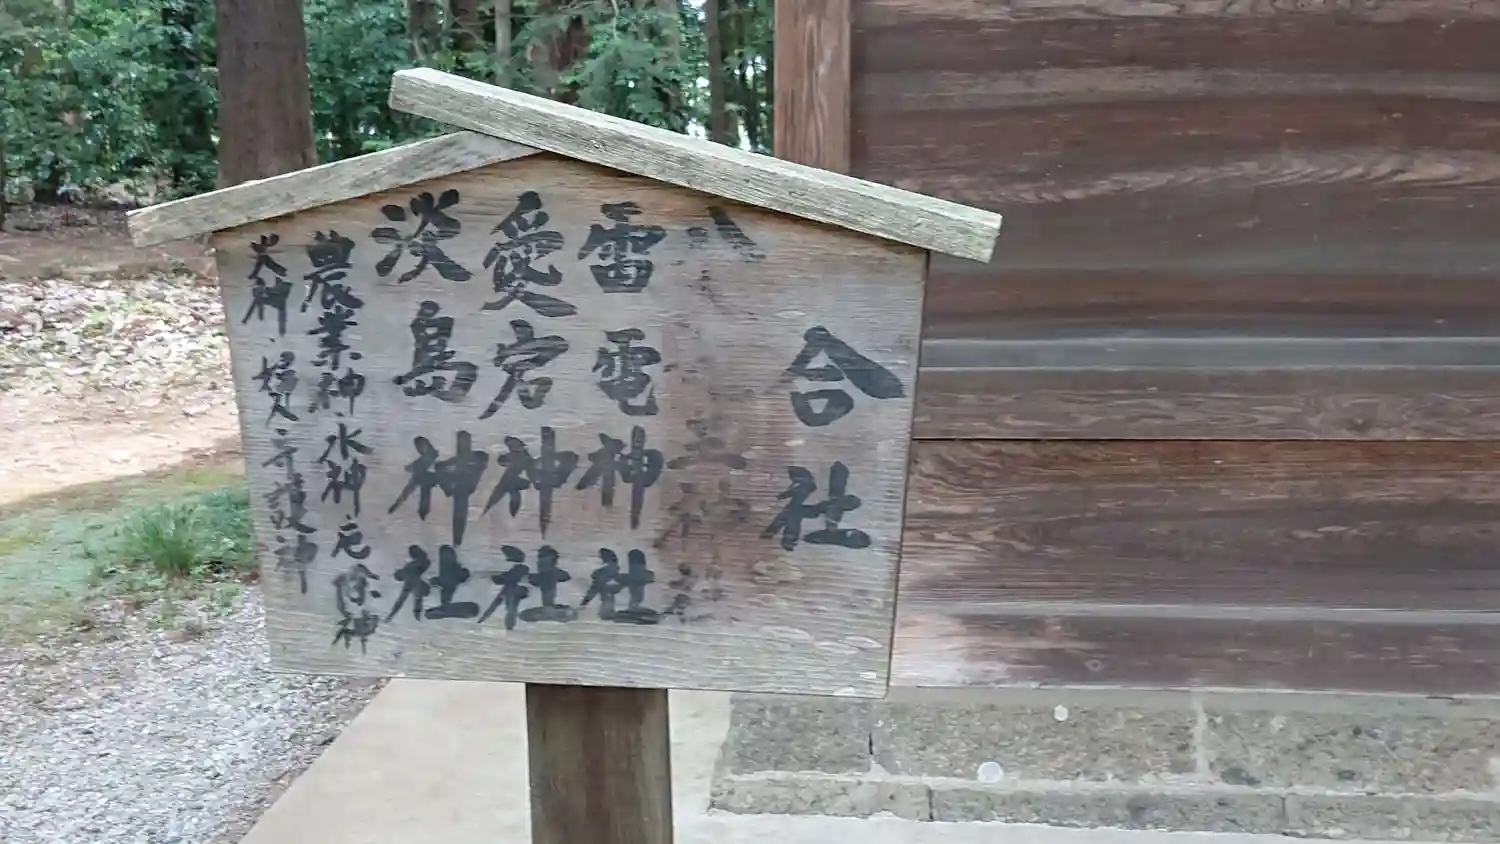 合社
八王神社
雷電神社
愛宕神社
淡島神社
農業神・水神・厄除神
火神・婦人守護神